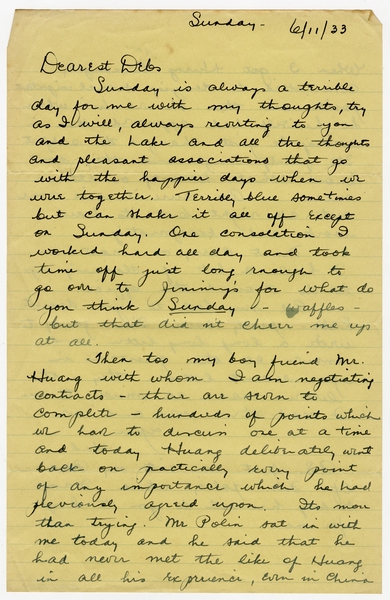 Sunday- 6/11/33
Dearest Debs
Sunday is always a terrible
day for me with my thoughts, try
as I will, always reverting to you
and the Lake and all the thoughts
and pleasant associations that go
with the happier days when we
were together. Terribly blue sometimes
but can shake it all off except
on Sunday. One consolation I
worked hard all day and took
time off just long enough to
go over to Jimmy's for what do
you think Sunday - waffles -
but that didn't cheer me up
at all.
Then too my boy friend Mr.
Huang with whom I am negotiating
contracts - there are seven to
complete - hundreds of points which
we have to discuss one at a time
and today Huang deliberately went
back on practically every point
of any importance which he had
previously agreed upon. Its more
than trying. Mr Polin sat in with
me today and he said that he
had never met the like of Huang
in all his experience, even in China